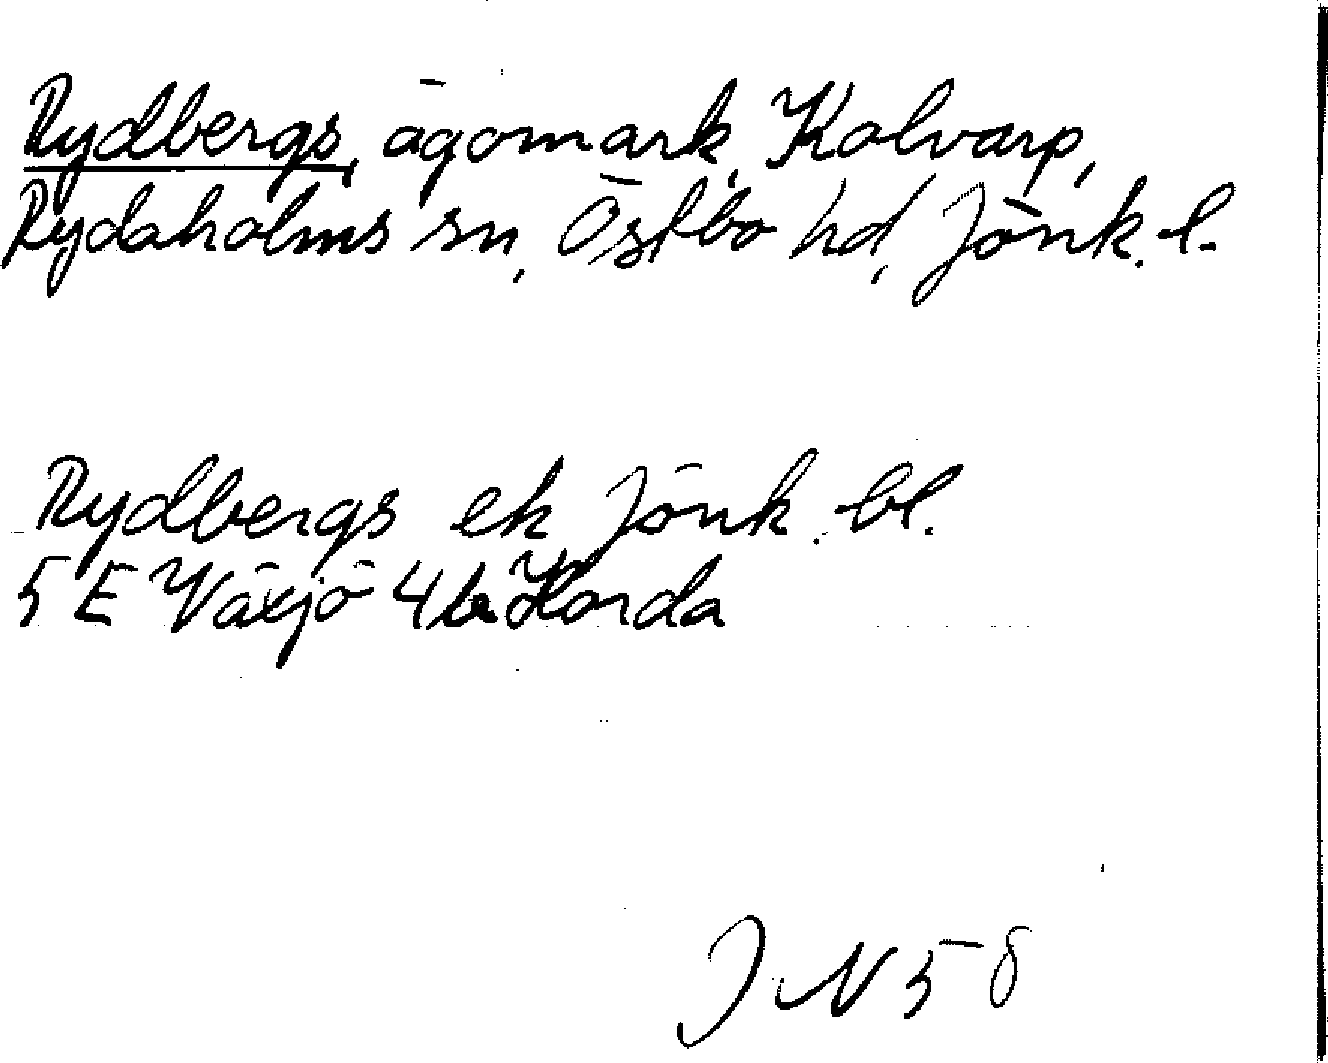 Rydbergs, ägomark, Kalvarp,
Rydaholms sn, Östbo hd, Jönk. l.
Rydbergs ek Jönk. bl.
5 E Växjö 4 b Horda
J N 58